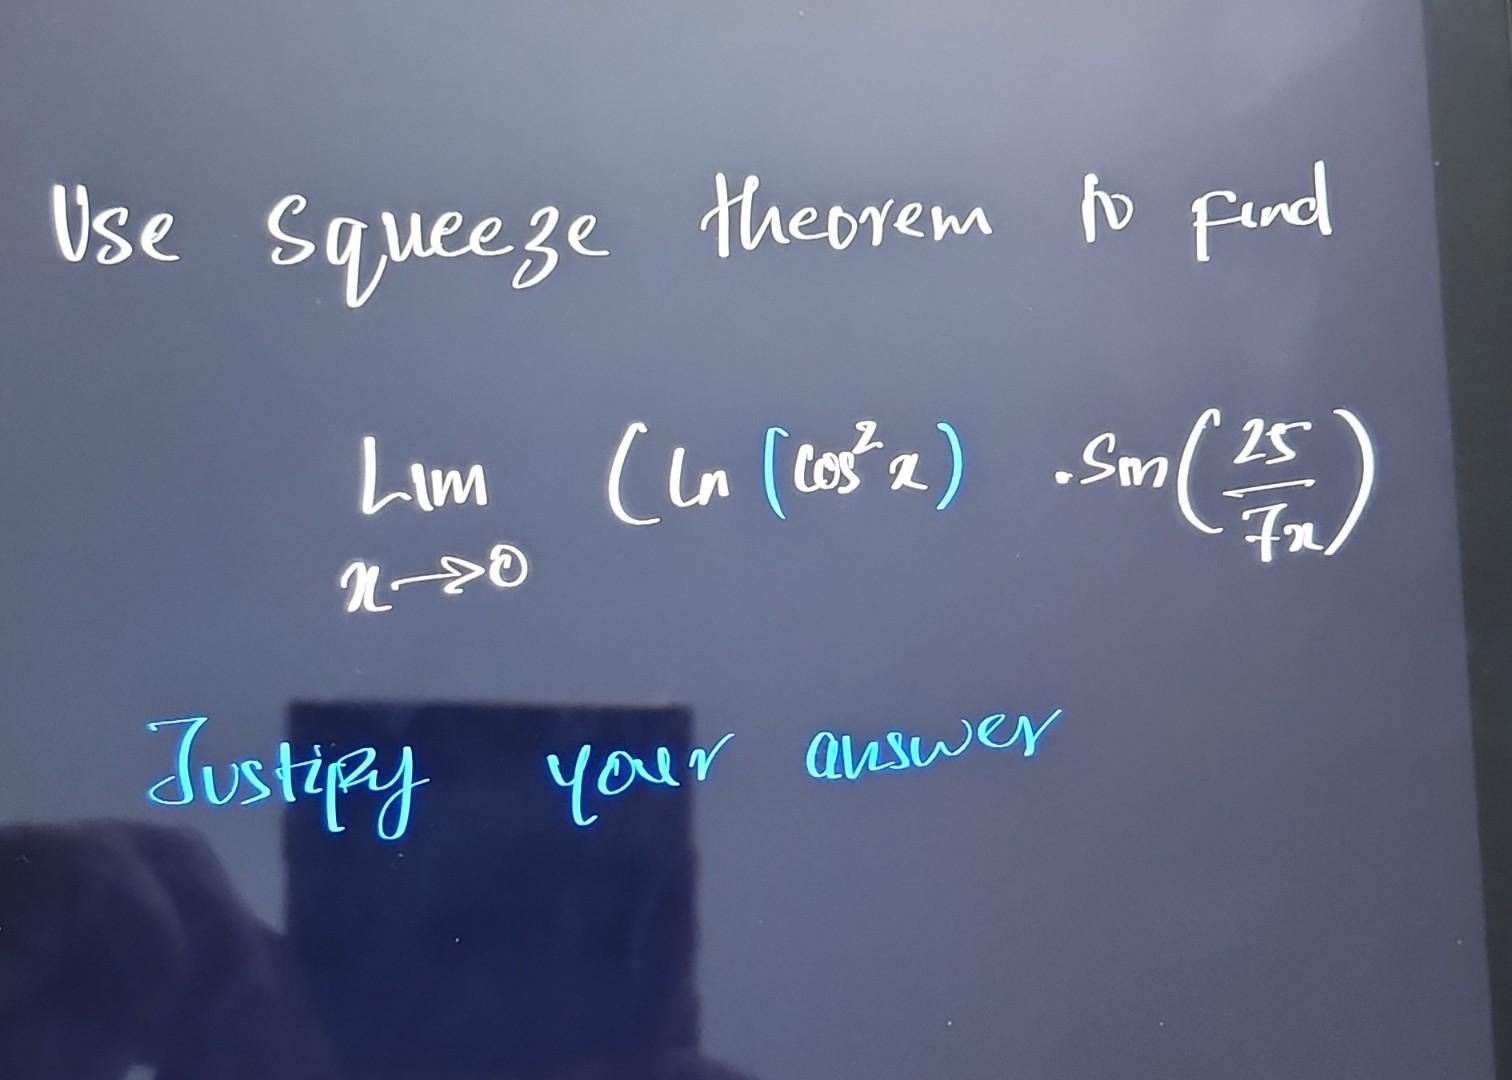 Use squeeze theorem to find
Lim (ln (cos² x) . Sin ( 25 / 7x )
x→0
Justify your answer